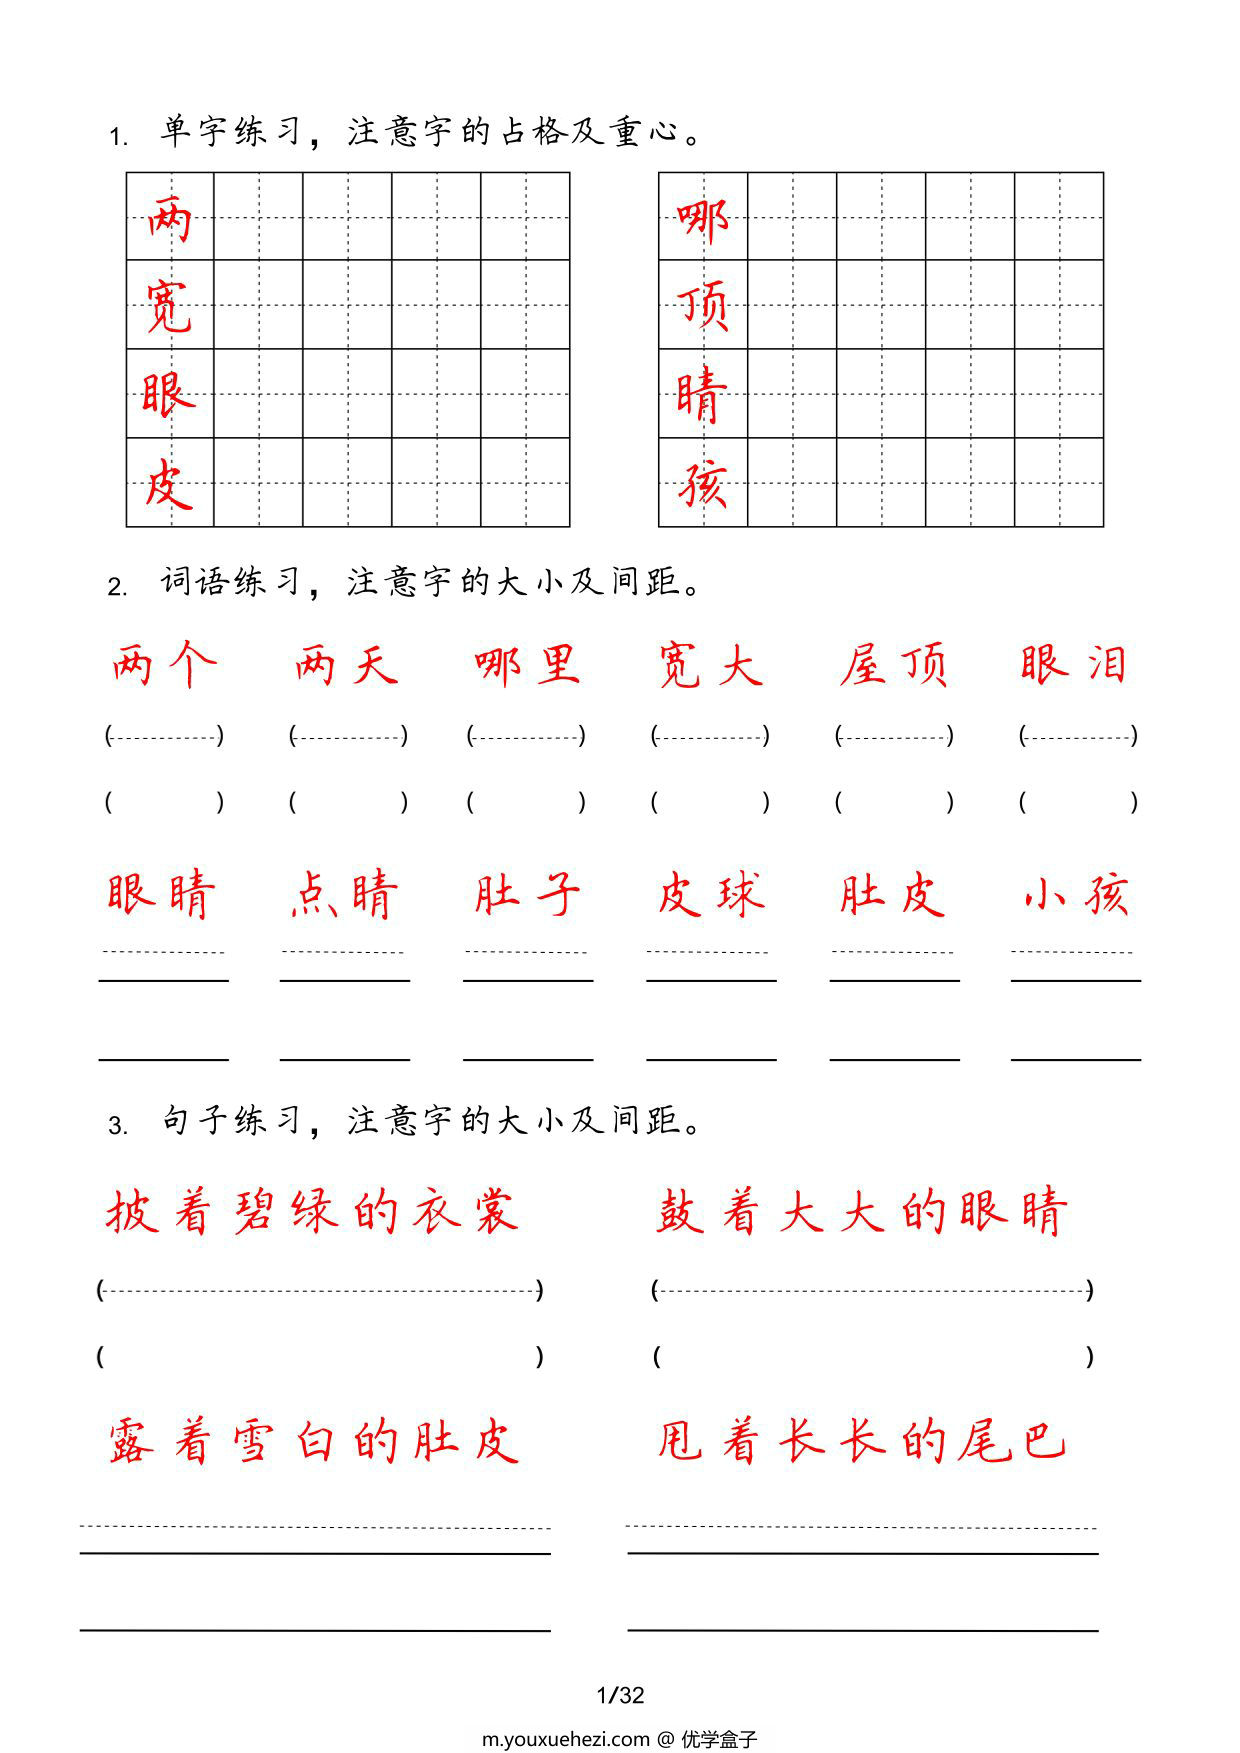 1. 单字练习，注意字的占格及重心。
两 哪
宽 顶
眼 睛
皮 孩
2. 词语练习，注意字的大小及间距。
两个 两天 哪里 宽大 屋顶 眼泪
( ) ( ) ( ) ( ) ( ) ( )
( ) ( ) ( ) ( ) ( ) ( )
眼睛 点睛 肚子 皮球 肚皮 小孩
3. 句子练习，注意字的大小及间距。
披着碧绿的衣裳 鼓着大大的眼睛
( ) ( )
( ) ( )
露着雪白的肚皮 甩着长长的尾巴
1/32
m.youxuehezi.com @ 优学盒子